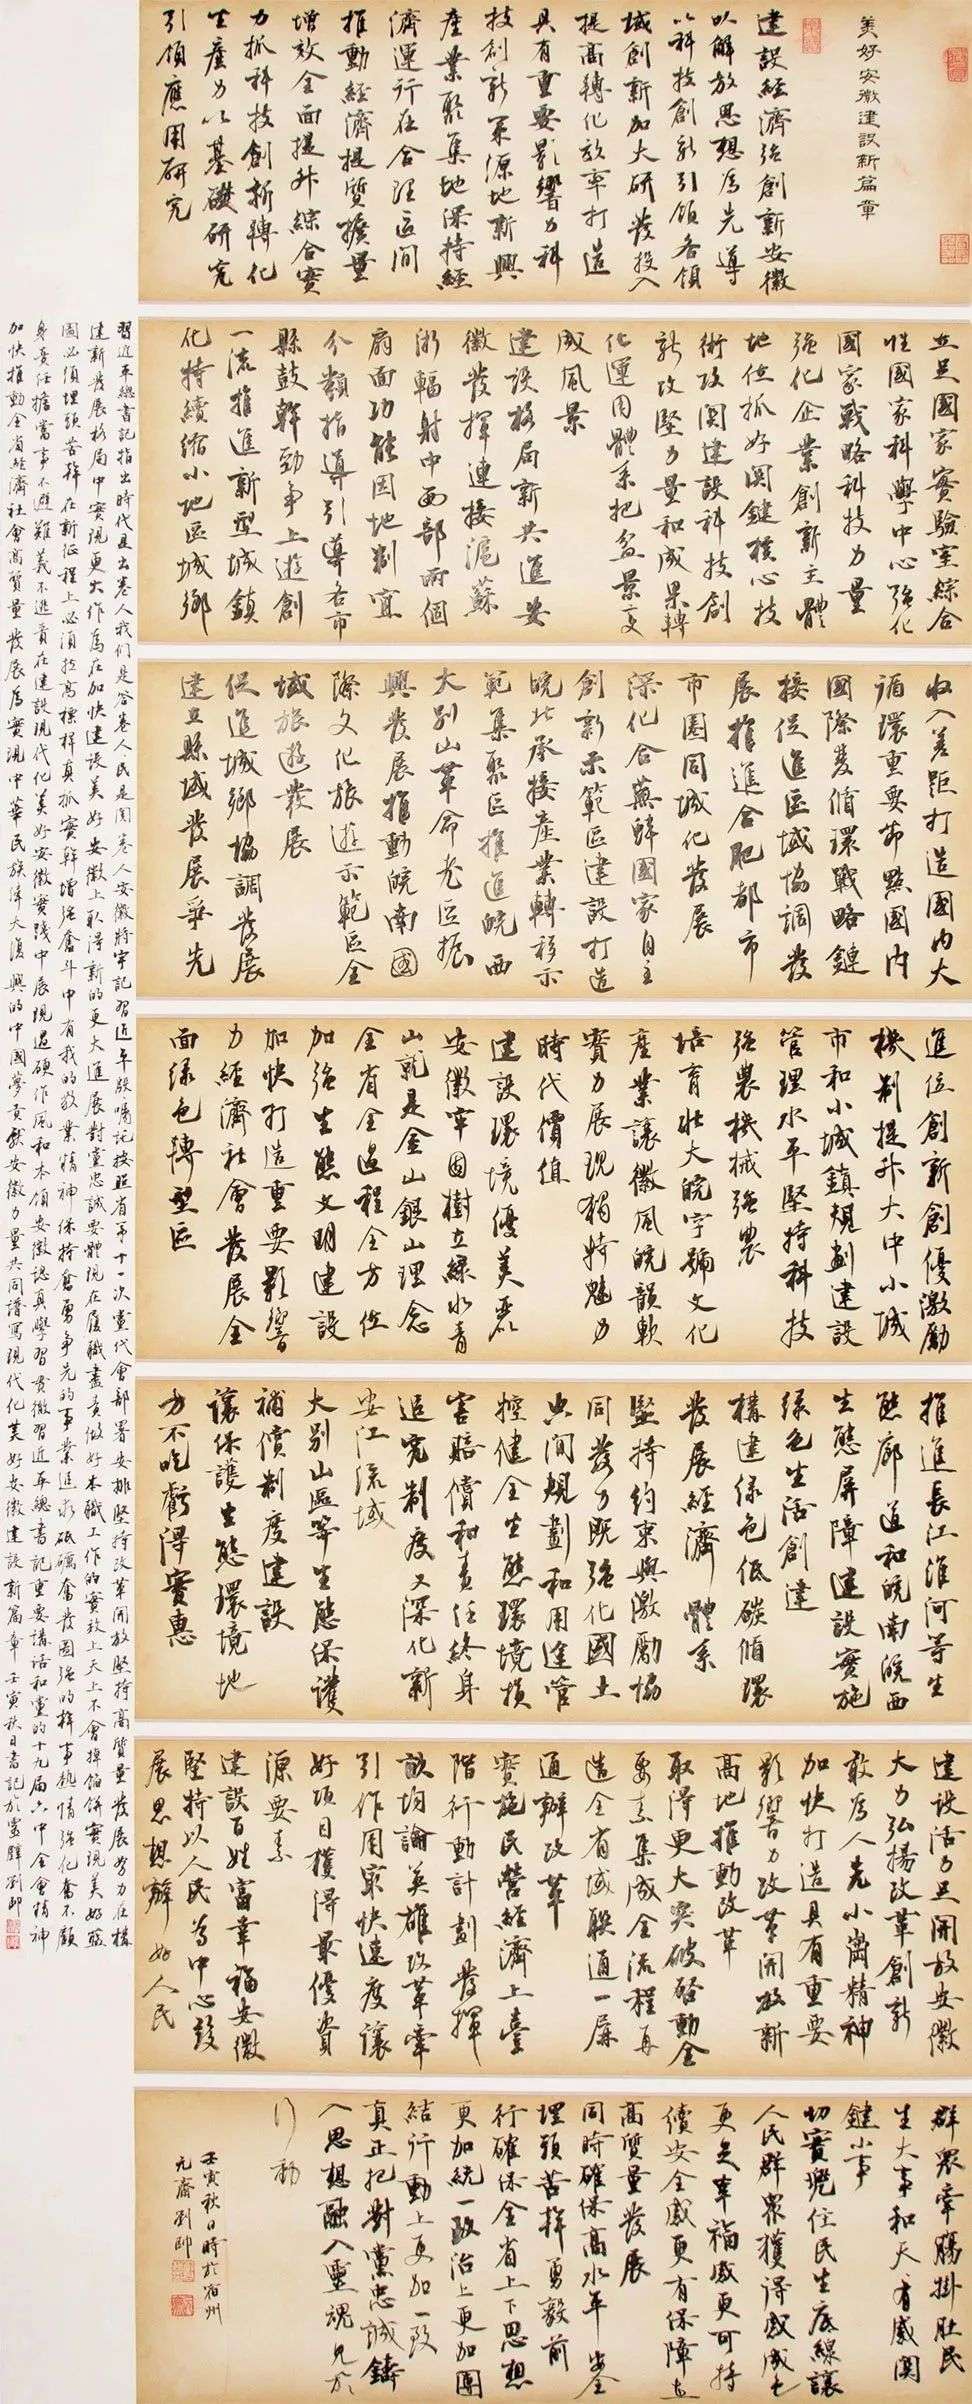 美好安徽建設新篇章
建設經濟強創新安徽
以解放思想為先導
以科技創新引領各領
域創新加大研發投入
提高轉化效率打造
具有重要影響力科
技創新策源地新興
產業聚集地保持經
濟運行在合理區間
推動經濟提質擴量
增效全面提升綜合實
力抓科技創新轉化
生產力以基礎研究
引領應用研究
立足國家實驗室綜合
性國家科學中心強化
國家戰略科技力量
強化企業創新主體
地位抓好關鍵核心技
術攻關建設科技創
新攻堅力量和成果轉
化運用體系把盆景變
成風景
建設格局新共進安
徽發揮連接滬蘇
浙輻射中西部兩個
扇面功能因地制宜
分類指導引導各市
縣鼓幹勁爭上游創
一流推進新型城鎮
化持續縮小地區城鄉
收入差距打造國內大
循環重要節點國內
國際雙循環戰略鏈
接促進區域協調發
展推進合肥都市
市圈同城化發展
深化合蕪蚌國家自主
創新示範區建設打造
皖北承接產業轉移示
範集聚區推進皖西
大別山革命老區振
興發展推動皖南國
際文化旅遊示範區全
域旅遊發展
促進城鄉協調發展
建立縣域發展爭先
進位創新創優激勵
機制提升大中小城
市和小城鎮規劃建設
管理水平堅持科技
強農機械強農
培育壯大皖字號文化
產業讓徽風皖韻軟
實力展現獨特魅力
時代價值
建設環境優美
安徽牢固樹立綠水青
山就是金山銀山理念
全省全過程全方位
加強生態文明建設
加快打造重要影響
力經濟社會發展全
面綠色轉型區
推進長江淮河等生
態廊道和皖南皖西
生態屏障建設實施
綠色生活創建
構建綠色低碳循環
發展經濟體系
堅持約束與激勵協
同發力既強化國土
空間規劃和用途管
控健全生態環境損
害賠償和責任終身
追究制度又深化新
安江流域
大別山區等生態保護
補償制度建設
讓保護生態環境地
方不吃虧得實惠
建設活力足開放安徽
大力弘揚改革創新
敢為人先小崗精神
加快打造具有重要
影響力改革開放新
高地推動改革
取得更大突破啟動全
要素集成全流程再
造全省域聯通一屏
通辦改革
實施民營經濟上臺
階行動計劃發揮
畝均論英雄改革牽
引作用最快速度讓
好項目獲得最優資
源要素
建設百姓富幸福安徽
堅持以人民為中心發
展思想辦好人民
群眾牽腸掛肚民
生大事和天天有感關
鍵小事
切實兜住民生底線讓
人民群眾獲得感成色
更足幸福感更可持
續安全感更有保障在
高質量發展
同時確保高水平安全
埋頭苦幹勇毅前
行確保全省上下思想
更加統一政治上更加團
結行動上更加一致
真正把對黨忠誠鑄
入思想融入靈魂見於
行動
壬寅秋日時於宿州
元齋劉帥
習近平總書記指出時代是出卷人我們是答卷人民是閱卷人安徽將牢記習近平殷囑託按照省第十一次黨代會部署安排堅持改革開放堅持高質量發展努力在構
建新發展格局中實現更大作為在加快建設美好安徽上取得新的更大進展對黨忠誠要體現在履職盡責做好本職工作的實效上天上不會掉餡餅實現美好藍
圖必須埋頭苦幹在新征程上必須拉高標桿真抓實幹增強奮鬥中有我的敬業精神保持奮勇爭先的事業追求砥礪奮發圖強的幹事熱情強化奮不顧
身責任擔當事不避難義不逃責在建設現代化美好安徽實踐中展現過硬作風和本領安徽認真學習貫徹習近平總書記重要講話和黨的十九屆六中全會精神
加快推動全省經濟社會高質量發展為實現中華民族偉大復興的中國夢貢獻安徽力量共同譜寫現代化美好安徽建設新篇章壬寅秋日書記於靈璧劉帥